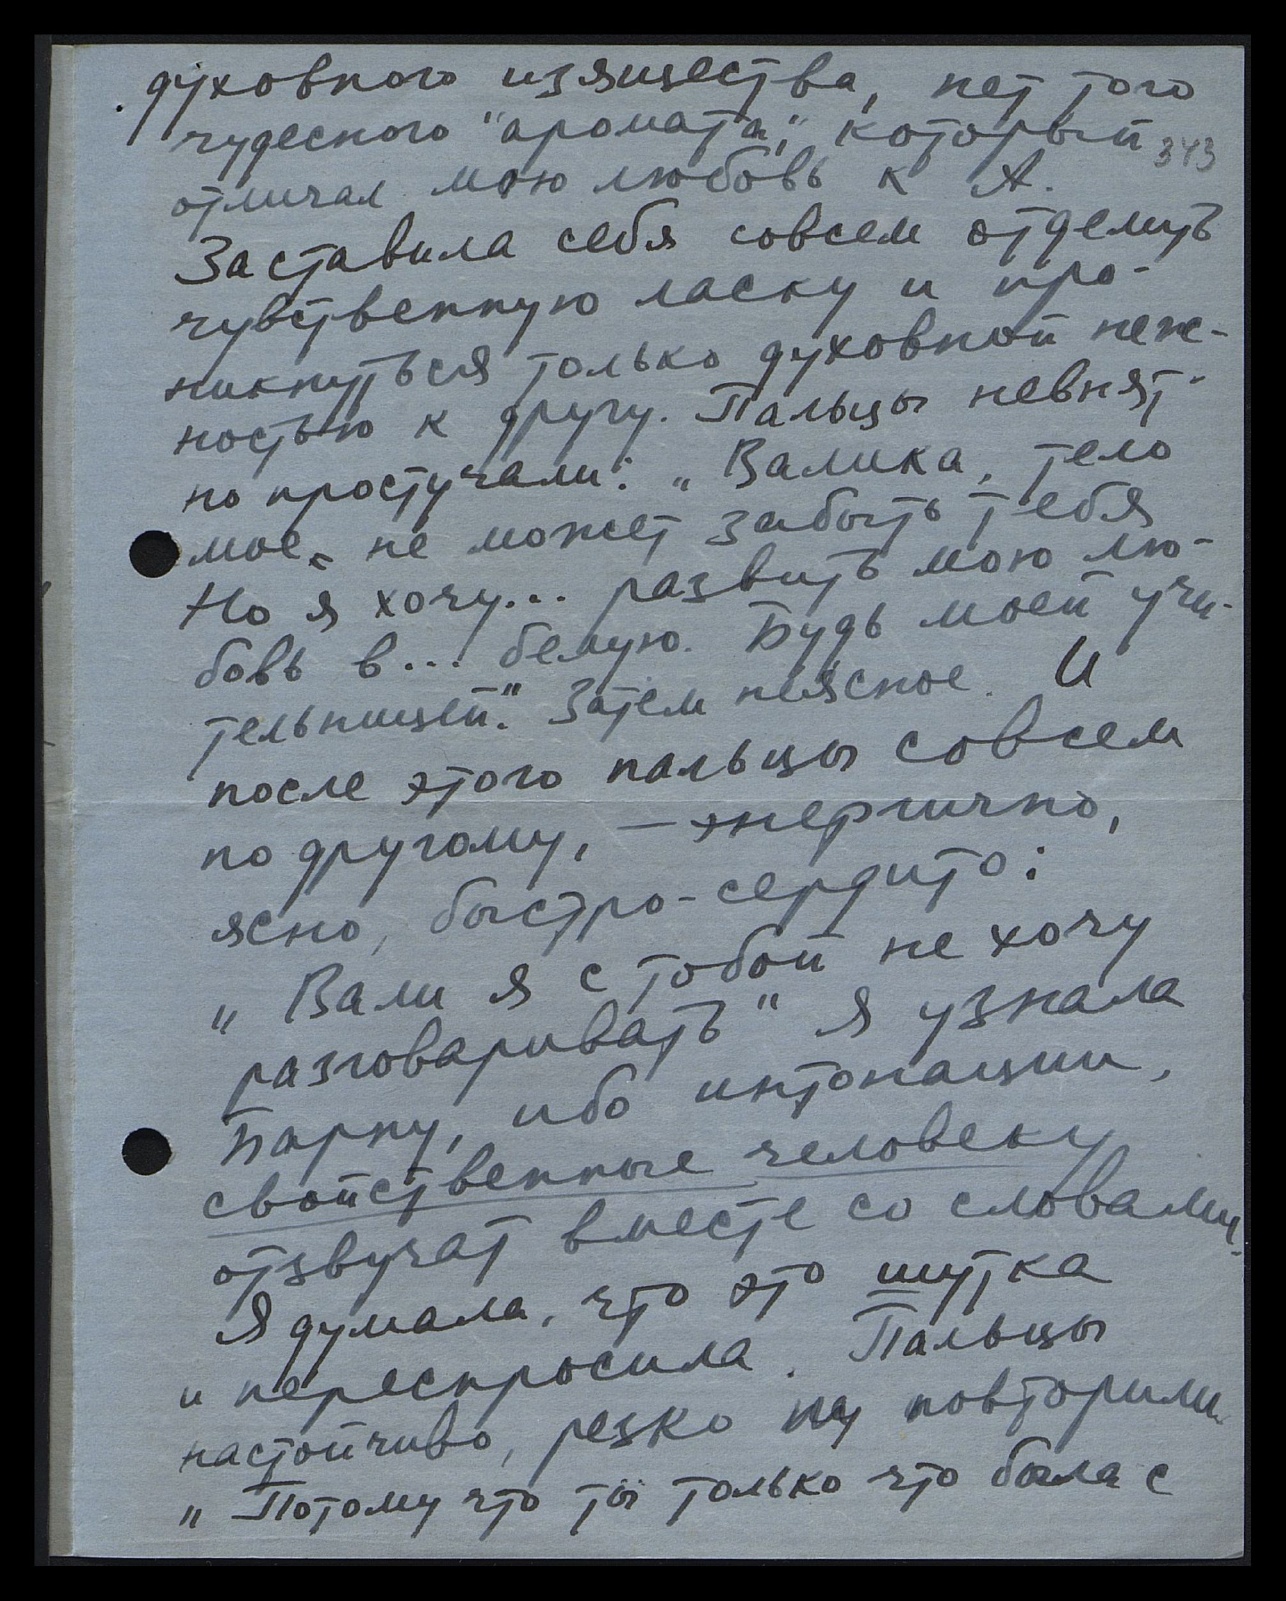 духовного изящества, нет того
чудесного "аромата", который
343
отличал мою любовь к А.
Заставила себя совсем отдемуть
чувственную ласку и про-
никнуться только духовной неж-
ностью к другу. Пальцы невнят-
но простучали: „Валика, тело
мое, не может забыть тебя
Но я хочу... развить мою лю-
бовь в... белую. Будь моей учи-
тельницей." Затем неясное. И
после этого пальцы совсем
по другому, — энергично,
ясно, быстро-сердито:
„Вали я с тобой не хочу
разговаривать" Я узнала
Барну, ибо интонации,
свойственные человеку
отзвучат вместе со словами.
Я думала, что это шутка
и переспросила. Пальцы
настойчиво, резко повторили
„Потому что ты только что была с